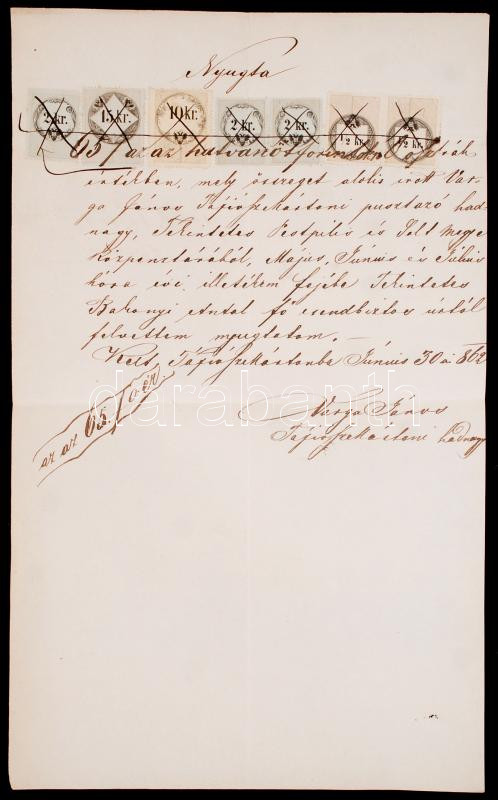 Nyugta
2 kr. 15 kr. 10 kr. 2 kr. 2 kr. 1/2 kr. 1/2 kr.
65 f az az hatvanöt forintokról o. é.
értékben, mely összeget alolis irott Var-
ga János Tápiószekástoni pusztázó had-
nagy, Tekintetes Pestpilis és Solt megye
házpénztárából, Május, Június és Július
hóra évi illetékem fejébe Tekintetes
Bakonyi Antal fő csendbiztos úrtól
felvettem nyugtatom. —
Kelt, Tápiószekástonba Június 30 á 862
az az 65. f o. ér
Varga János
Tápiószekástoni hadnagy
darabanth